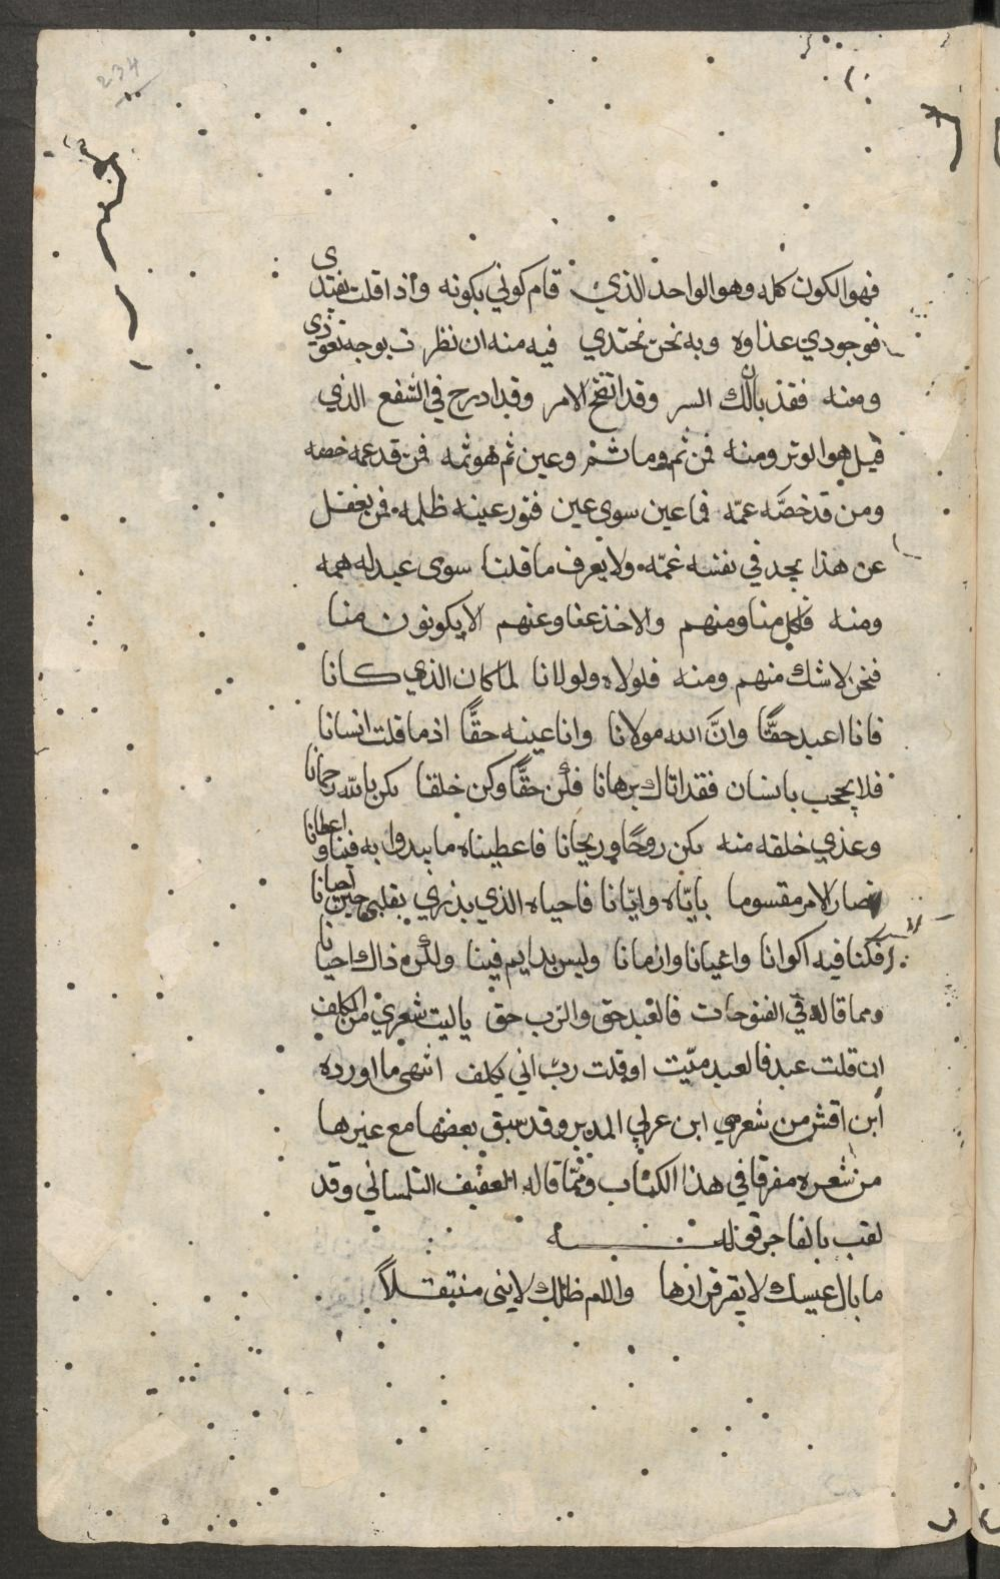 234
فهو الكون كله وهو الواحد الذي قام كوني بكونه واذا قلت يغتدى
فوجودي غذاوه وبه نحن نحتدي فيه منه ان نظرت بوجه تعوذي
ومنه فقد بان لك السر وقد اتضح الامر وقد ادرج في الشفع الذي
قيل هو الوتر ومنه فمن ثم وما ثم وعين ثم هو ثمه فمن قد عمه خصه
ومن قد خصَّه عمّه فما عين سوى عين فنور عينه ظلمه فمن يغفل
عن هذا يجد في نفسه غمّه ولا يعرف ما قلنا سوى عبد له همه
ومنه فالكل منا ومنهم والاخذ عنا وعنهم الا يكونون منا
فنحن لا شك منهم ومنه فلولاه ولولانا لما كان الذي كانا
فانا اعبد حقًّا وانَّ الله مولانا وانا عينه حقًّا اذ ما قلت انسانا
فلا يحجب بانسان فقد اتاك برهانا فكن حقًّا وكن خلقا تكن بالله رحمانا
وغذي خلقه منه تكن روحًا وريحانا فاعطيناه ما يبدوا به فينا واعطانا
فصار الامر مقسوما باياه وايّانا فاحياه الذي يدري بقلبي حين احيانا
فكنا فيه اكوانا واعيانا وازمانا وليس بدايم فينا ولكن ذاك احيانا
ومما قاله في الفتوحات فالعبد حق والرب حق ياليت شعري من المكلف
ان قلت عبد فالعبد ميّت او قلت ربّ اني يكلف انتهى ما اورده
ابن اقش من شعر ابن عربي المدبر وقد سبق بعضها مع غيرها
من شعره مفرقا في هذا الكتاب ومما قاله العفيف التلمساني وقد
لقب بالفاجر قوله
ما بال عيسك لا يقر قرارها والام ظلك لا يني متنقلاً